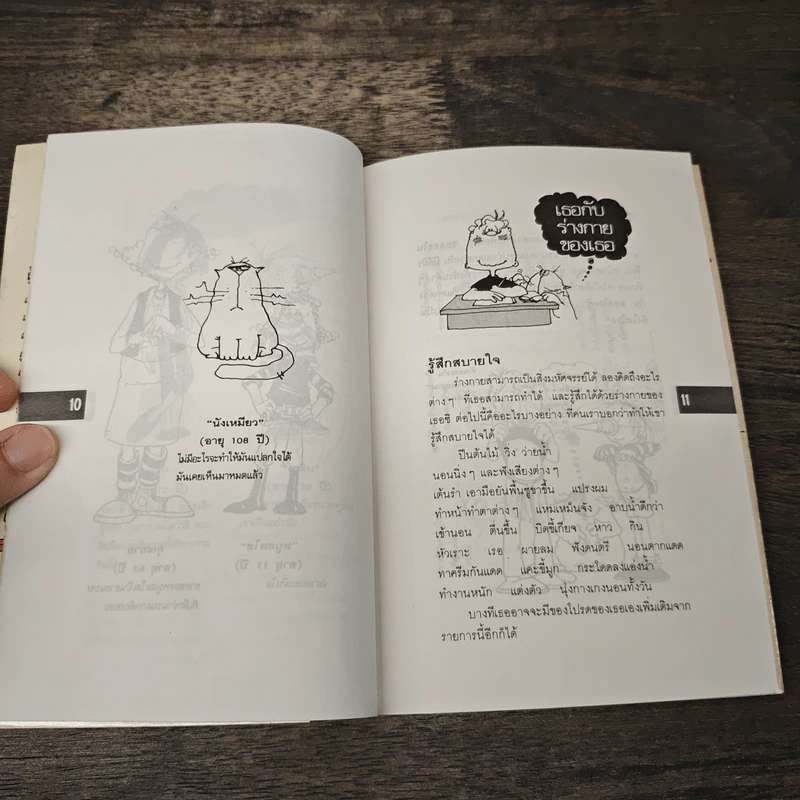 10
"นังเหมียว"
(อายุ 108 ปี)
ไม่มีอะไรจะทำให้มันแปลกใจได้
มันเคยเห็นมาหมดแล้ว
เธอกับ
ร่างกาย
ของเธอ
11
รู้สึกสบายใจ
ร่างกายสามารถเป็นสิ่งมหัศจรรย์ได้ ลองคิดถึงอะไร
ต่างๆ ที่เธอสามารถทำได้ และรู้สึกได้ด้วยร่างกายของ
เธอซิ ต่อไปนี้คืออะไรบางอย่าง ที่คนเราบอกว่าทำให้เขา
รู้สึกสบายใจได้
ปีนต้นไม้ วิ่ง ว่ายน้ำ
นอนนิ่งๆ และฟังเสียงต่างๆ
เต้นรำ เอามือยันพื้นชูขาขึ้น แปรงผม
ทำหน้าทำตาต่างๆ แหมเหม็นจัง อาบน้ำดีกว่า
เข้านอน ตื่นขึ้น บิดขี้เกียจ หาว กิน
หัวเราะ เรอ ผายลม ฟังดนตรี นอนตากแดด
ทาครีมกันแดด แคะขี้มูก กระโดดลงแอ่งน้ำ
ทำงานหนัก แต่งตัว นุ่งกางเกงนอนทั้งวัน
บางทีเธออาจจะมีของโปรดของเธอเองเพิ่มเติมจาก
รายการนี้อีกก็ได้